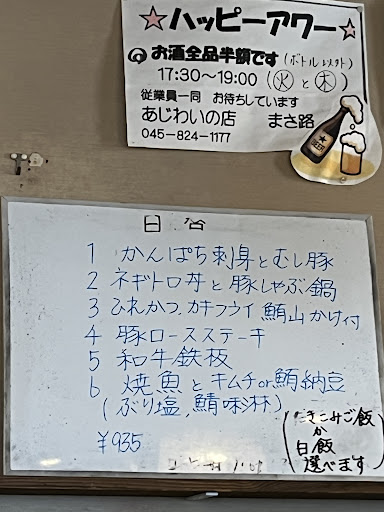 ☆ハッピーアワー☆
お酒全品半額です(ボトル以外)
17:30〜19:00 (火と木)
従業員一同 お待ちしています
あじわいの店 まさ路
045-824-1177
BEER
1 かんぱち刺身とむし豚
2 ネギトロ丼と豚しゃぶ鍋
3 ひれかつ,カキフライ 鮪山かけ付
4 豚ロースステーキ
5 和牛鉄板
6 焼魚とキムチor鮪納豆
(ぶり塩,鯖味淋)
¥935
たきこみご飯
か
白飯
選べます